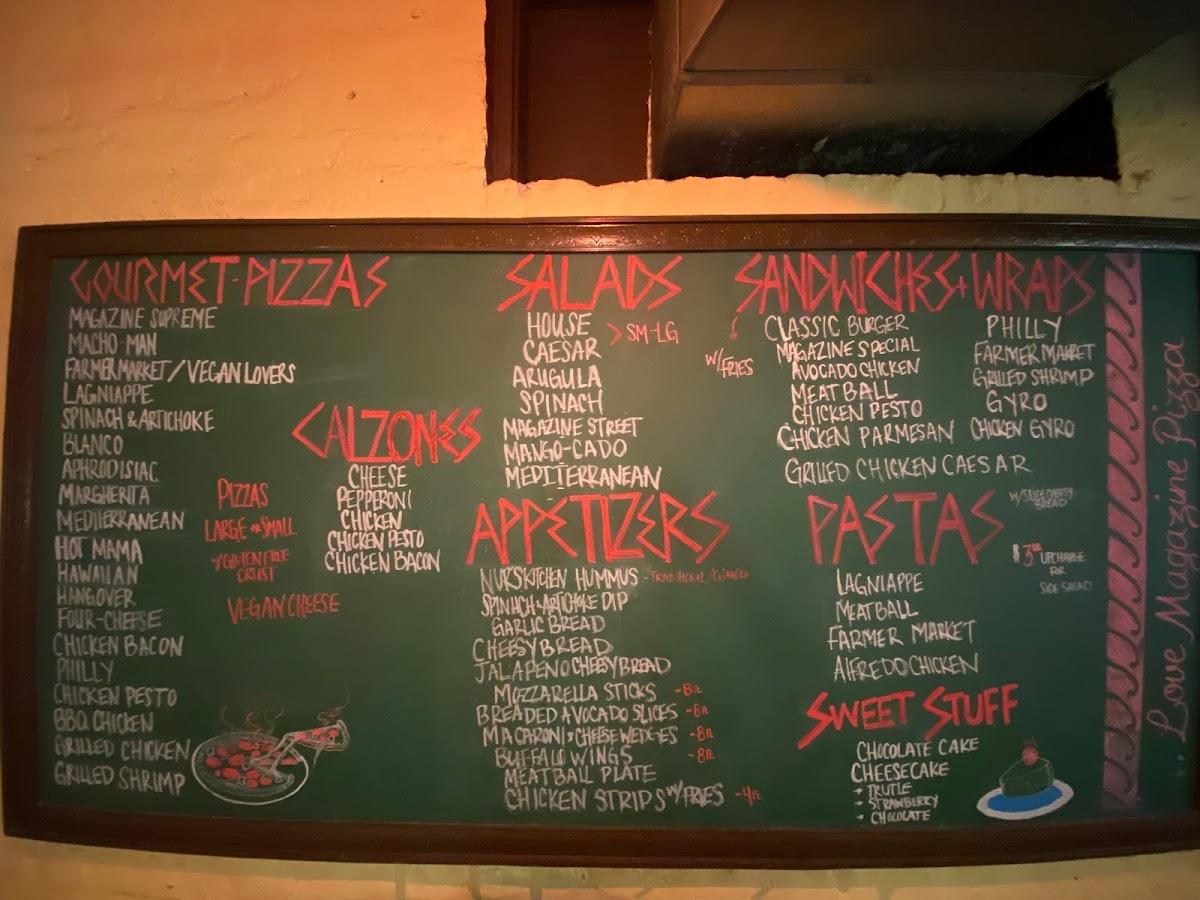 GOURMET-PIZZAS
MAGAZINE SUPREME
MACHO-MAN
FARMER MARKET/VEGAN LOVERS
LAGNIAPPE
SPINACH & ARTICHOKE
BLANCO
APHRODISIAC
MARGHERITA
MEDITERRANEAN
HOT MAMA
HAWAIIAN
HANGOVER
FOUR-CHEESE
CHICKEN BACON
PHILLY
CHICKEN PESTO
BBQ CHICKEN
GRILLED CHICKEN
GRILLED SHRIMP
PIZZAS
LARGE or SMALL
GLUTEN FREE
CRUST
VEGAN CHEESE
CALZONES
CHEESE
PEPPERONI
CHICKEN
CHICKEN PESTO
CHICKEN BACON
SALADS
HOUSE
CAESAR
> SM-LG
ARUGULA
SPINACH
MAGAZINE STREET
MANGO-CADO
MEDITERRANEAN
APPETIZERS
NUR'S KITCHEN HUMMUS - TRADITIONAL/CILANTRO
SPINACH-ARTICHOKE DIP
GARLIC BREAD
CHEESY BREAD
JALAPENO CHEESY BREAD
MOZZARELLA STICKS -8PC
BREADED AVOCADO SLICES -8PC
MACARONI & CHEESE WEDGES -8PC
BUFFALO WINGS -8PC
MEATBALL PLATE
CHICKEN STRIPS W/FRIES -4PC
SANDWICHES + WRAPS
W/FRIES
CLASSIC BURGER
MAGAZINE SPECIAL
AVOCADO CHICKEN
MEATBALL
CHICKEN PESTO
CHICKEN PARMESAN
GRILLED CHICKEN CAESAR
PHILLY
FARMER MARKET
GRILLED SHRIMP
GYRO
CHICKEN GYRO
PASTAS
W/SLICE CHEESY
BREAD
$3.00 UPCHARGE
FOR
SIDE SALAD
LAGNIAPPE
MEATBALL
FARMER MARKET
ALFREDO CHICKEN
SWEET STUFF
CHOCOLATE CAKE
CHEESECAKE
- TRUTLE
- STRAWBERRY
- CHOCOLATE
...Love Magazine Pizza